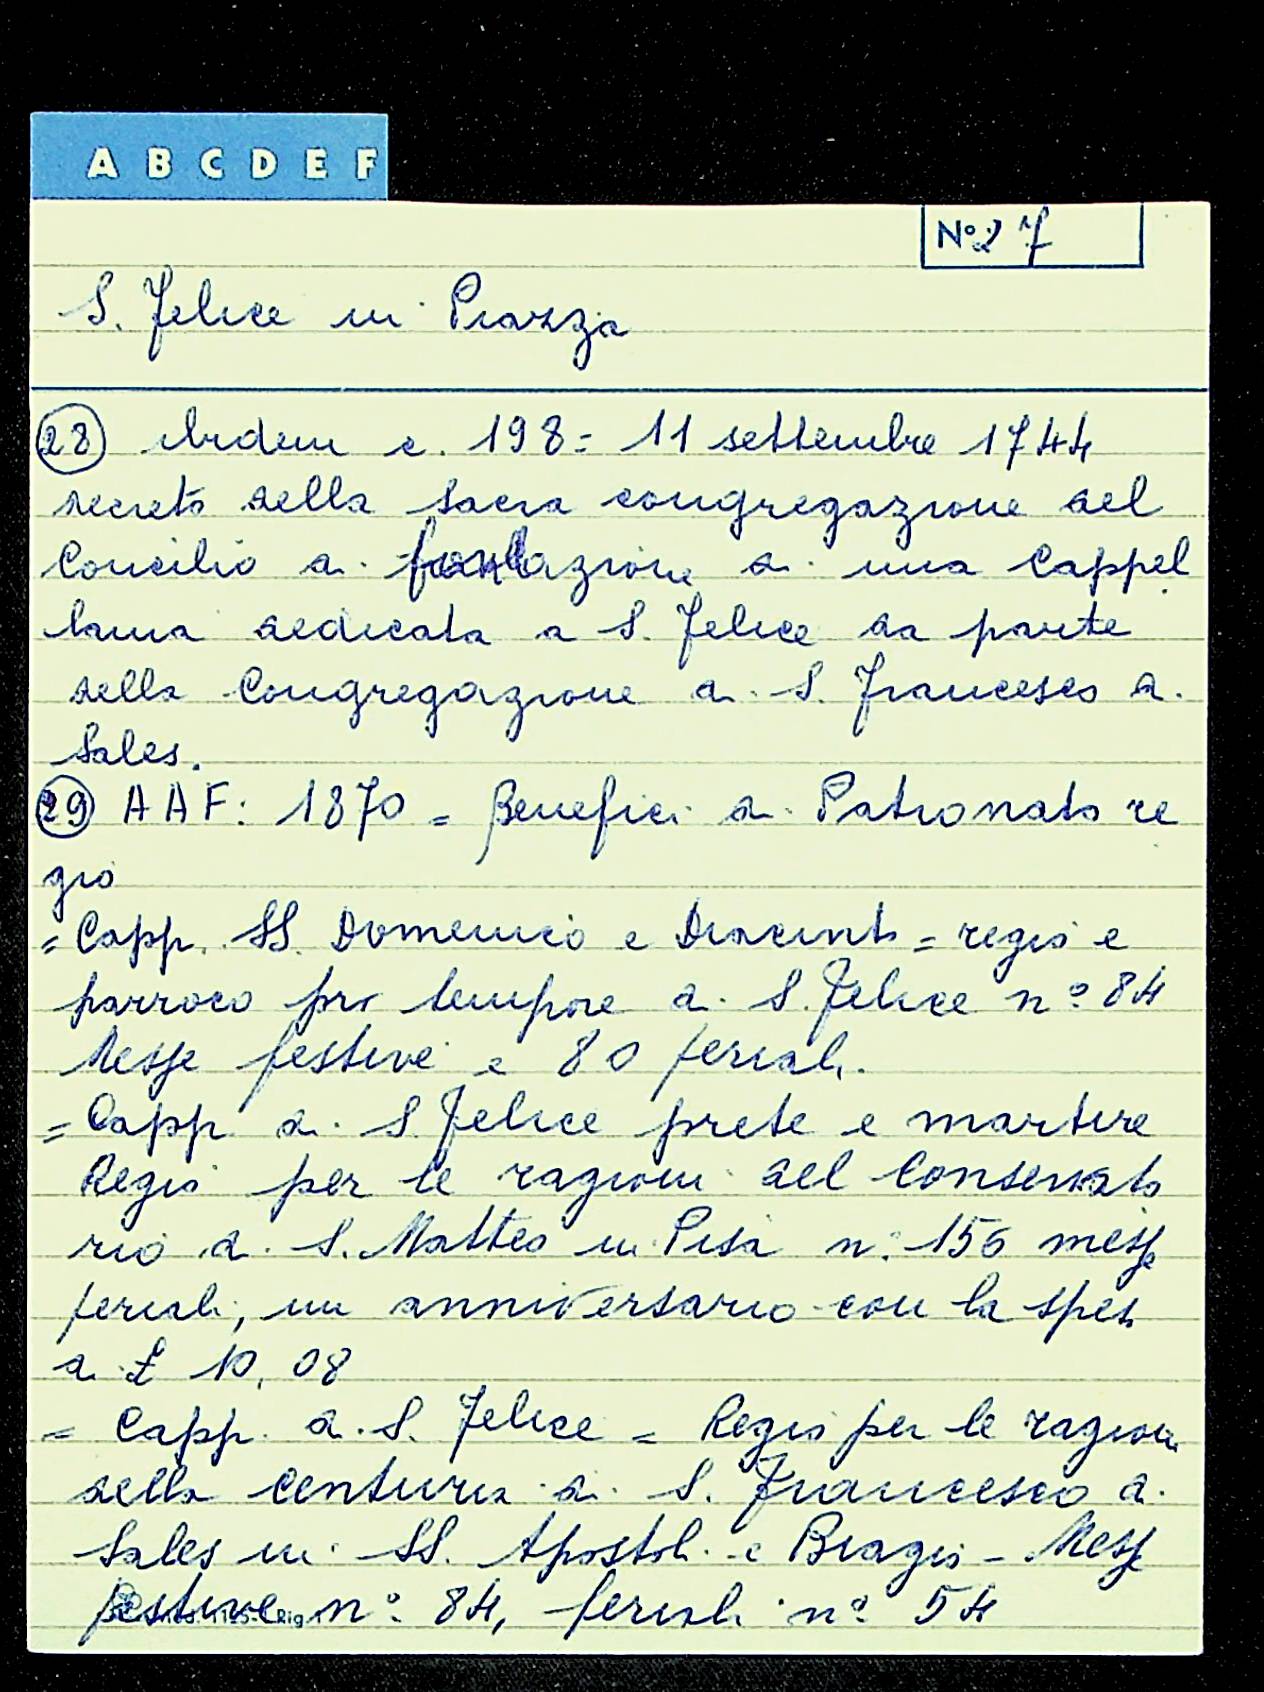 A B C D E F
N° 27
S. Felice in Piazza
28 Ibidem c. 198 = 11 settembre 1744
decreto della sacra congregazione del
Concilio di fondazione di una Cappel
lania dedicata a S. Felice da parte
della Congregazione di S. Francesco di
Sales.
29 AAF: 1870 = Benefici di Patronato re
gio
= Capp. SS. Domenico e Diacinto = regio e
parroco pro tempore di S. Felice n° 84
Messe festive e 80 feriali.
= Capp. di S. Felice prete e martire
Regio per le ragioni del Conservato
rio di S. Matteo in Pisa n° 156 messe
feriali, un anniversario con la spesa
di £ 10,08
= Capp. di S. Felice = Regio per le ragioni
della centuria di S. Francesco di
Sales in SS. Apostoli e Biagio - Messe
festive n° 84, feriali n° 54